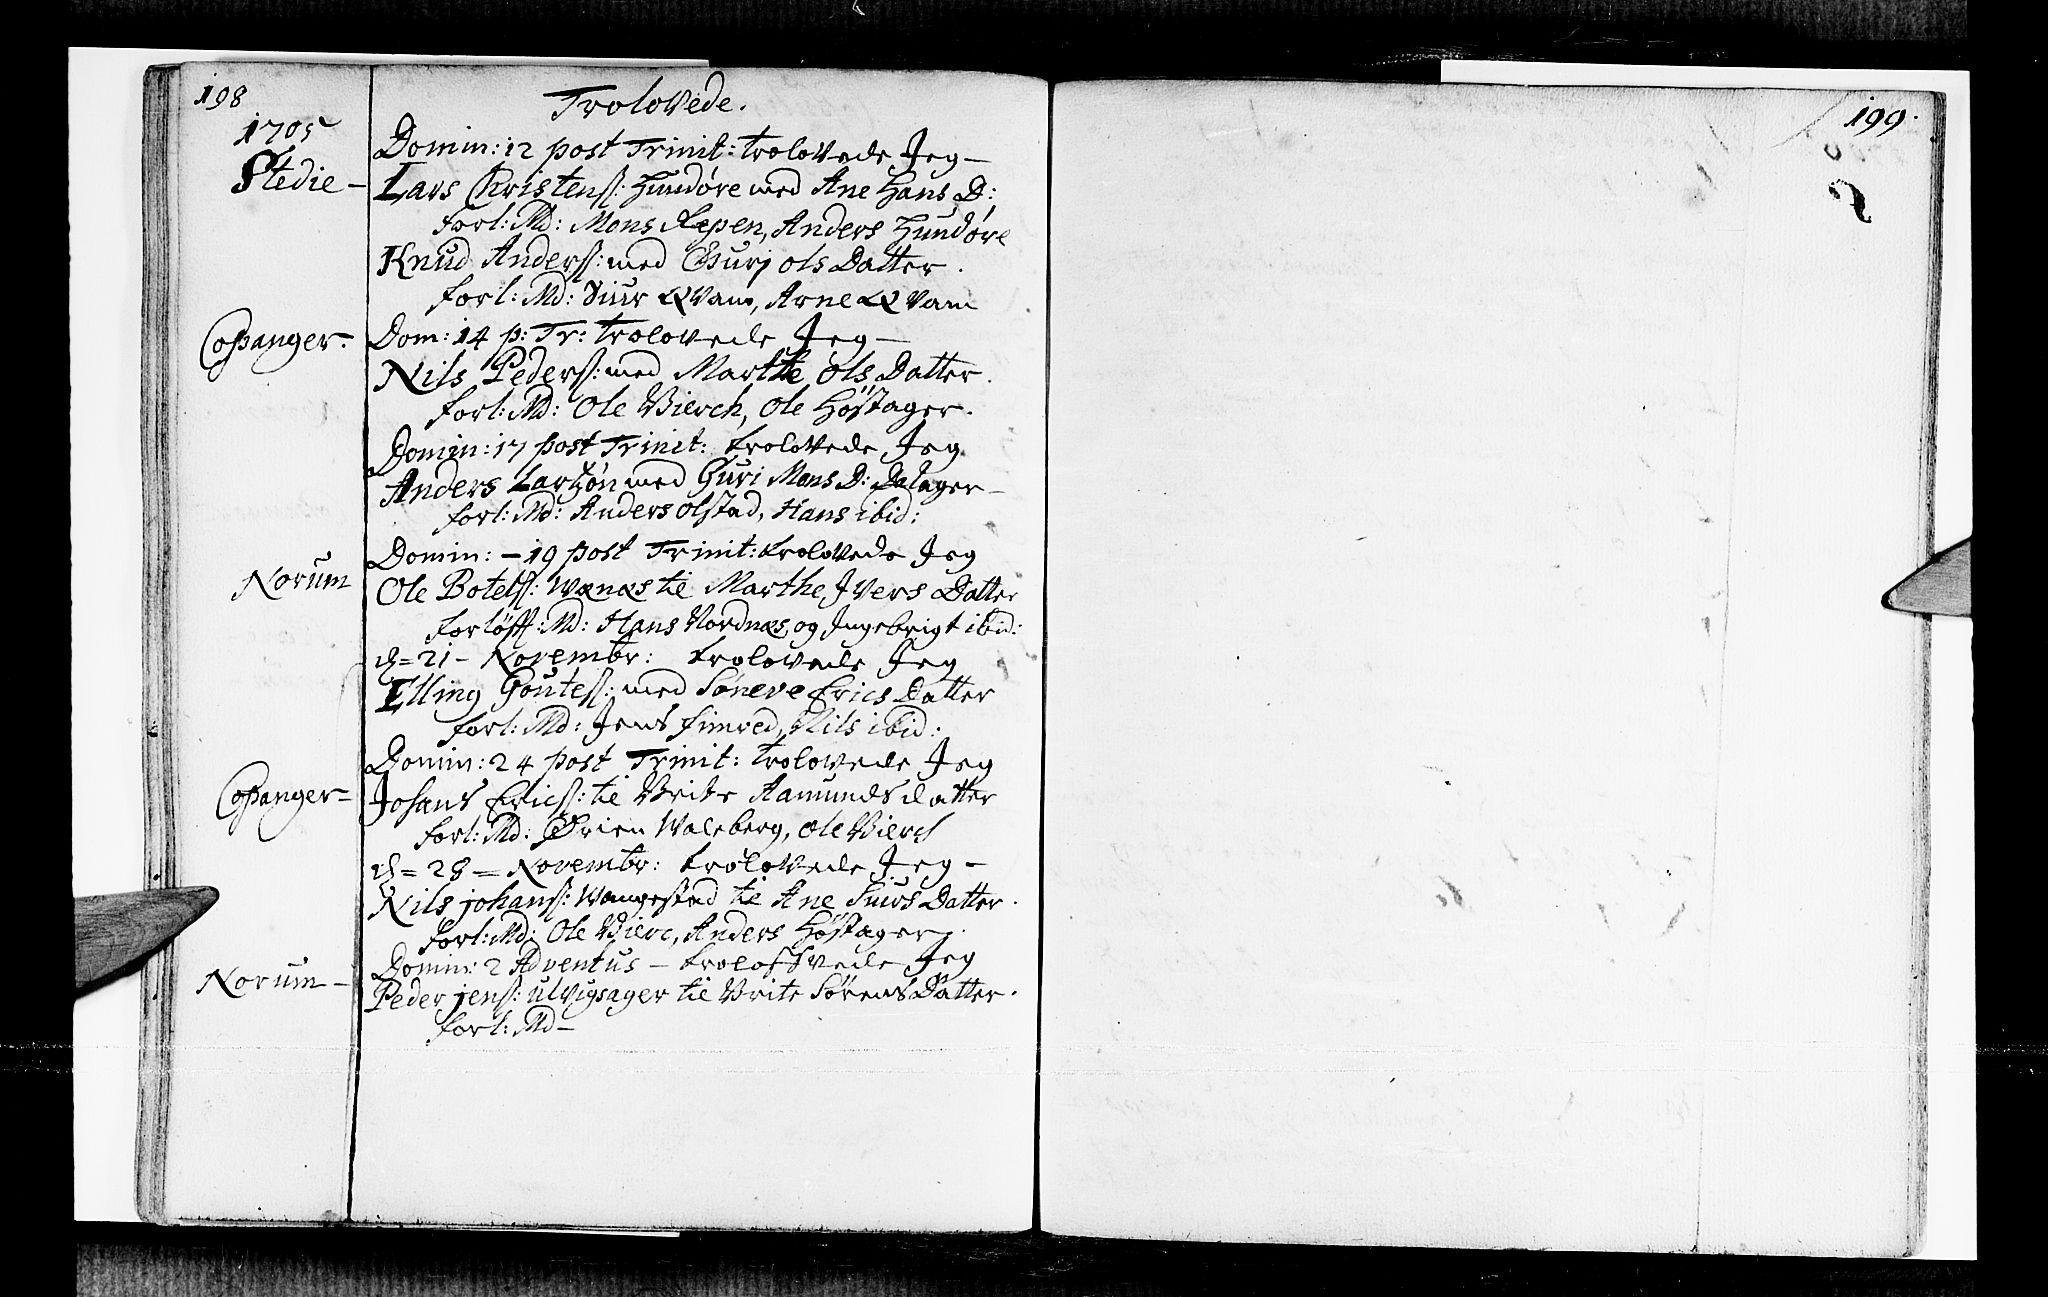 198
Trolovede.
1705
Domin: 12 post Trinit: trolovede Jeg
Stedie - Lars Christenß: Hundøre med Ane Hans D:
forl: Md: Mons Ræpen, Anders Hundøre
Knud Anderß: med Gurj ols Datter.
forl: Md: Siur Qvam, Arne Qvam
Coßanger - Dom: 14 p: Tr: trolovede Jeg -
Nils Pederß: med Marthe Ols Datter.
forl: Md: Ole Bierch, Ole Høstager.
Domin: 17 post Trinit: trolovede Jeg
Anders Larßøn med Guri Mons D: Dalager -
forl: Md: Anders olstad, Hans ibid:
Domin: - 19 post Trinit: trolovede Jeg
Norum Ole Botelß: Wænæs til Marthe Ivers Datter
forløff: Md: Hans Nordnæs, og Ingebrigt ibid:
d = 21 - Novembr: trolovede Jeg
Elling Gouteß: med Søneve Erics Datter
forl: Md: Jens fimred, Nils ibid:
Domin: 24 post Trinit: trolovede Jeg
Coßanger - Johans Ericß: til Brite Aamunds datter
forl: Md: Ørien Waleberg, Ole Bierch
d = 28 = Novembr: trolovede Jeg -
Nils johanß: Wangestad til Ane Siurs Datter.
forl: Md: Ole Bierc, Anders Høstager.
Domin: 2 Adventus - troloffvede Jeg
Norum - Peder jenß: ulvigsager til Brite Sørens Datter.
forl: Md -
199.